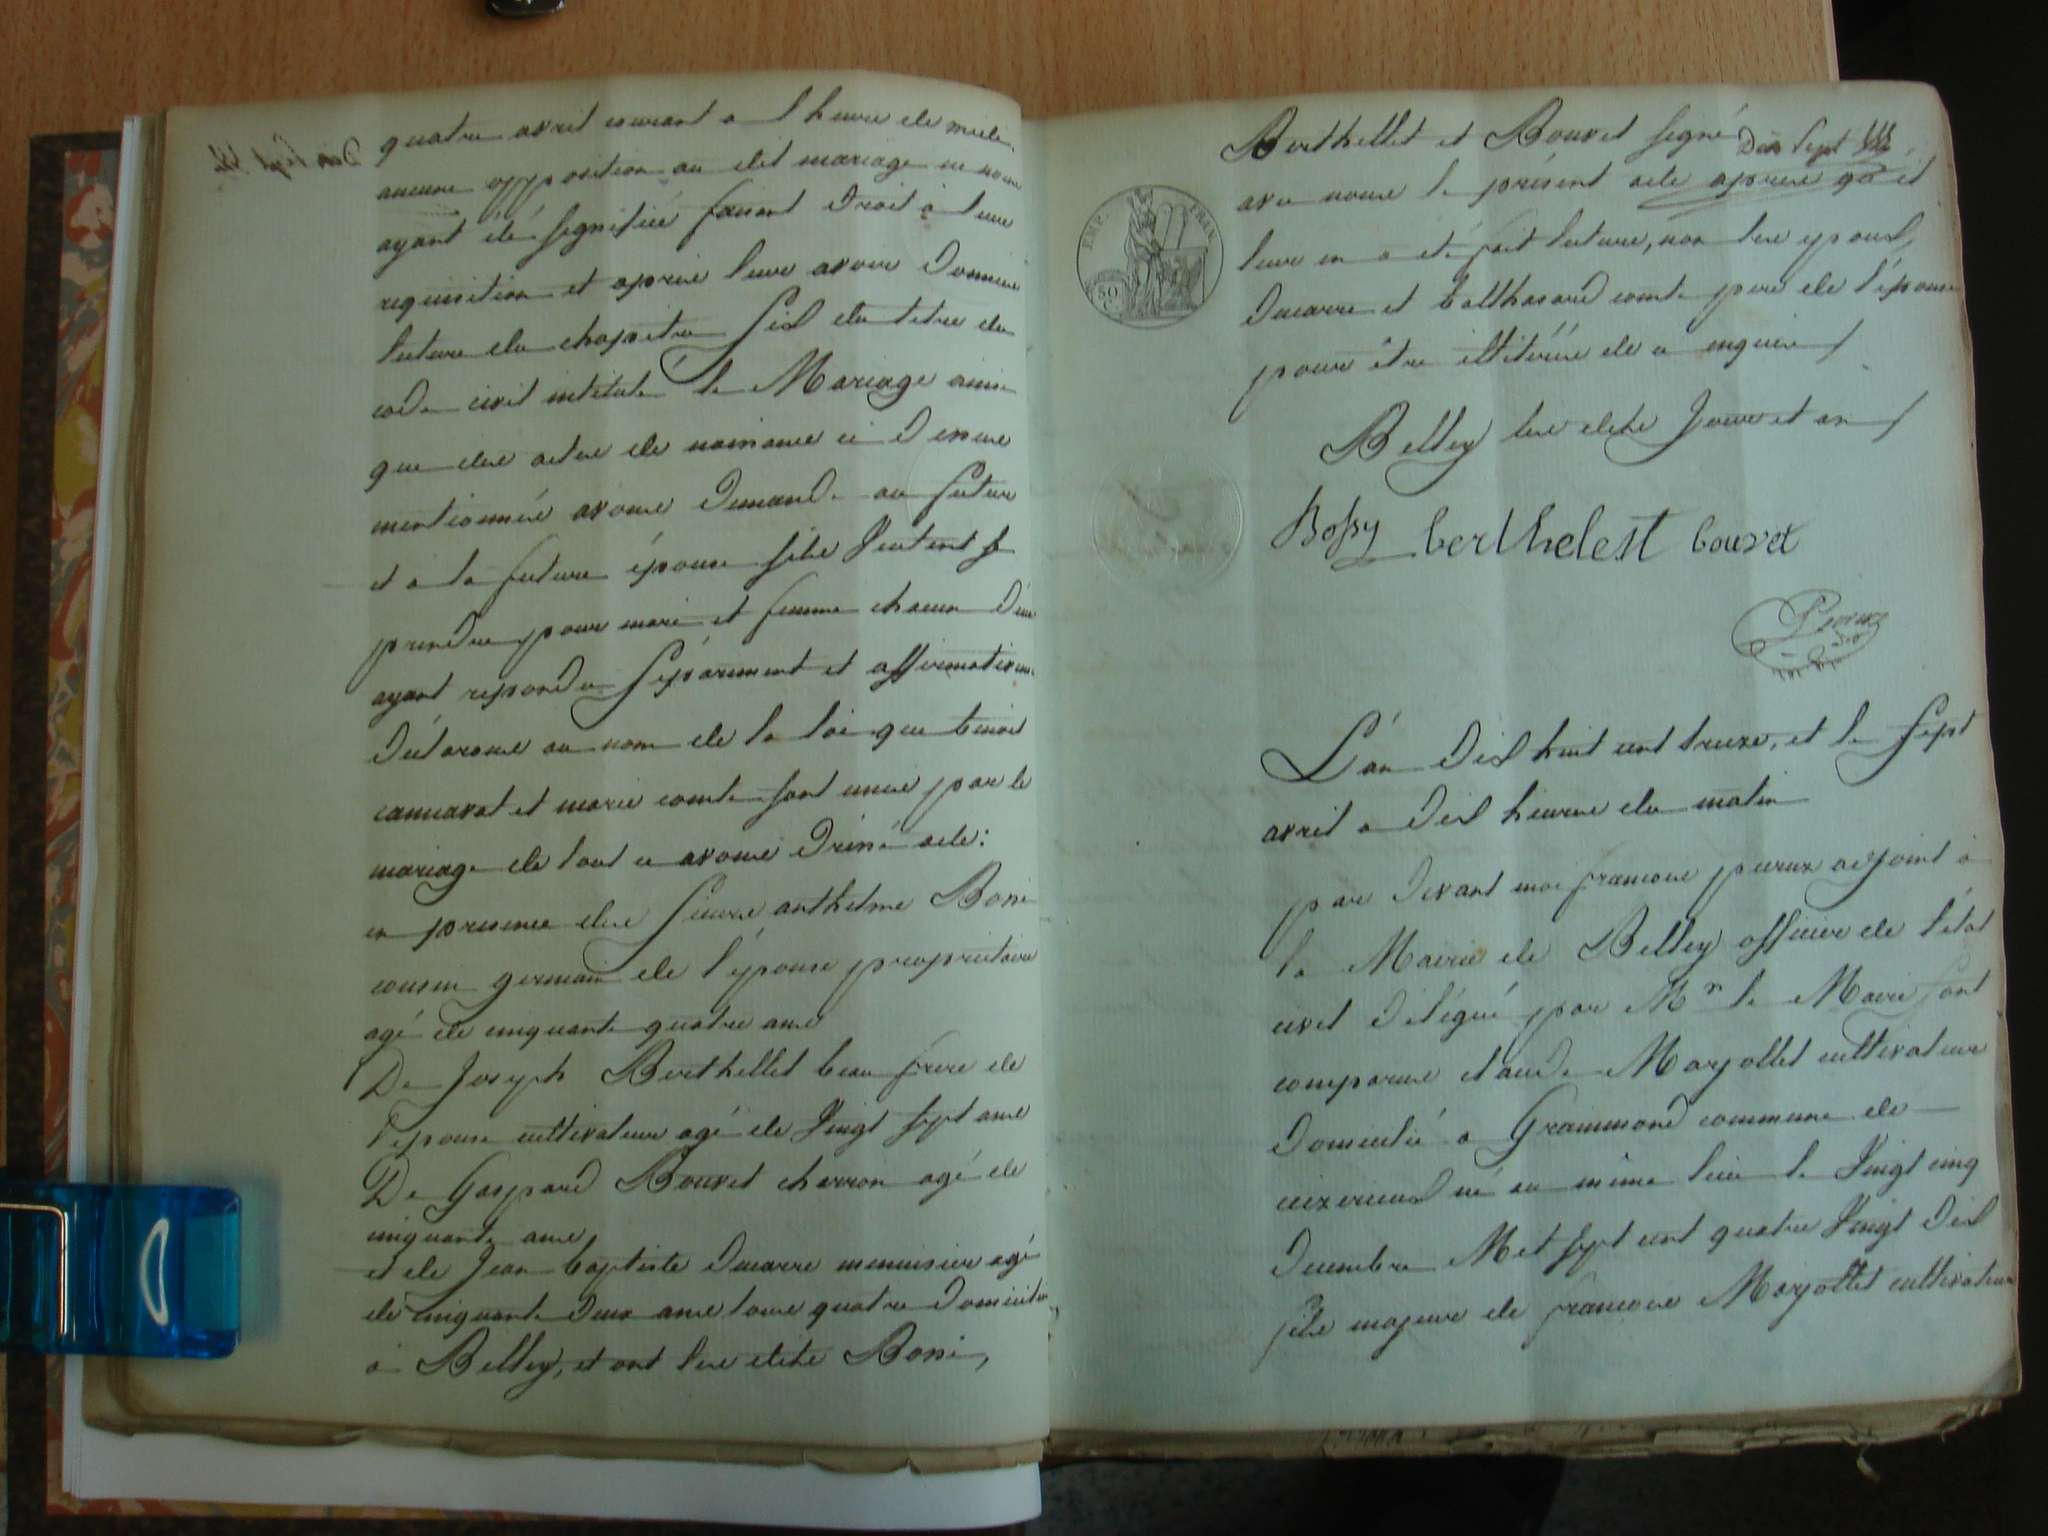 quatre avril courant a l heure de midi.
aucune opposition au dit mariage ne nous
ayant été signifiée faisant Droit à leur
requisition et après leur avoir Donnée
lecture du chapitre six du titre du
code civil intitulé le Mariage ainsi
que des actes de naissance ci Dessus
mentionnés avons Demandé au futur
et a la future épouse s'ils veulent se
prendre pour mari et femme chacun D'eux
ayant repondu séparement et affirmativem
Déclarons au nom de la loi que benoit
cannavat et marie comte sont unis par le
mariage de tout ce avons Dressé acte:
en presence des sieurs anthelme Bossi
cousin germain de l'épouse propriétaire
agé de cinquante quatre ans
De Joseph Berthellet beau frère de
l'epouse cultivateur agé de vingt sept ans
De Gaspard Bouvet charron agé de
cinquante ans
et de Jean baptiste Ducarre menuisier agé
de cinquante Deux ans tous quatre Domiciliés
à Belley, et ont les dits Bossi,
Berthellet et Bouvet signé
Dix Sept
avec nous le présent acte après qu'il
leur en a été fait lecture, non les epoux,
Ducarre et balthasard comte pere de l'épouse
pour être illitérés de ce enquis
Belley les dits Jour et an
EMP. FRAN.
50
Bossy berthelest bouvet
L'an Dix huit cent treize, et le sept
avril a Dix heures du matin
par Devant moi francois peroux adjoint à
la Mairie de Belley officier de l'état
civil Délégué par Mr le Maire sont
comparus claude Marjollet cultivateur
Domicilié a Grammond commune de
ceizerieux né au même lieu le vingt cinq
Decembre Mil sept cent quatre vingt Dix
fils majeur de francois Marjollet cultivateur